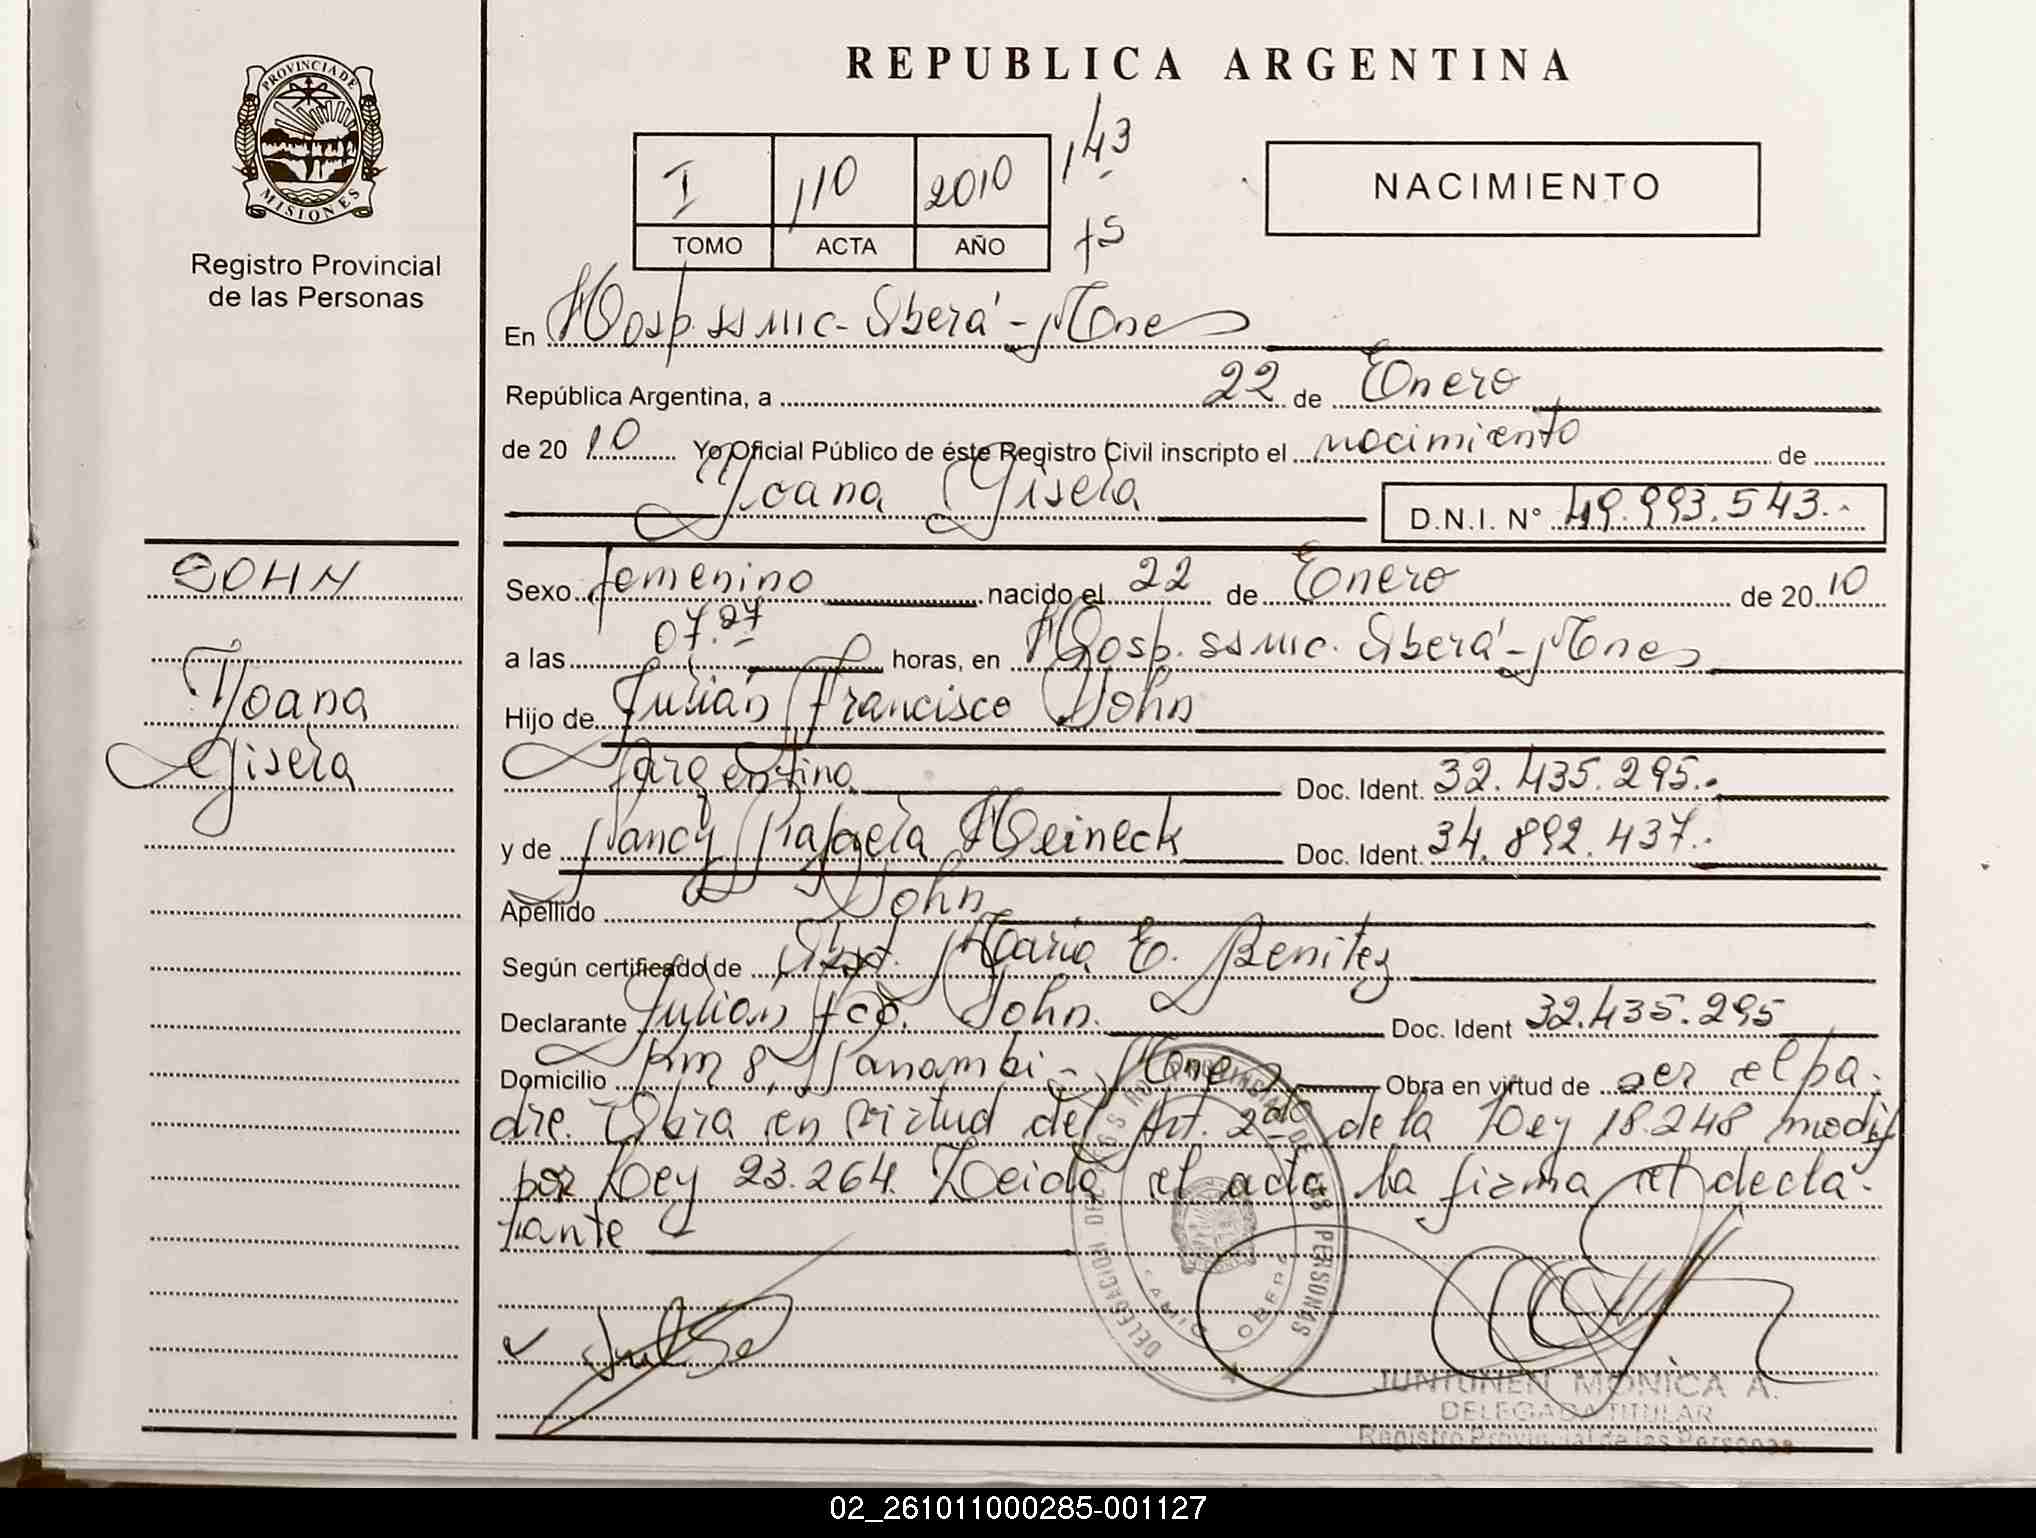 REPUBLICA ARGENTINA
PROVINCIA DE
MISIONES
Registro Provincial
de las Personas
I 110 2010 143
TOMO ACTA AÑO
NACIMIENTO
En Hosp. ssmic - Oberá - Mnes
República Argentina, a 22 de Enero
de 2010 Yo Oficial Público de éste Registro Civil inscripto el nacimiento de
Yoana Gisela
D.N.I. N° 49.993.543.-
SOHN
Yoana
Gisela
Sexo femenino nacido el 22 de Enero de 2010
a las 07.27 horas, en Hosp. ssmic. Oberá - Mnes
Hijo de Julián Francisco Sohn
Argentino Doc. Ident. 32.435.295.-
y de Nancy Rafaela Heineck Doc. Ident. 34.892.437.-
Apellido Sohn
Según certificado de Obst. María E. Benitez
Declarante Julián Fco. Sohn. Doc. Ident 32.435.295
Domicilio Km 8, Panambi - Mnes Obra en virtud de ser el pa-
dre. Obra en virtud del Art. 2do de la Ley 18.248 modif
por Ley 23.264. Leida el acta la firma el decla-
rante
DELEGACION DEL REGISTRO PROVINCIAL DE LAS PERSONAS
OBERA
JUNTUNEN MONICA A.
DELEGADA TITULAR
Registro Provincial de las Personas
02_261011000285-001127